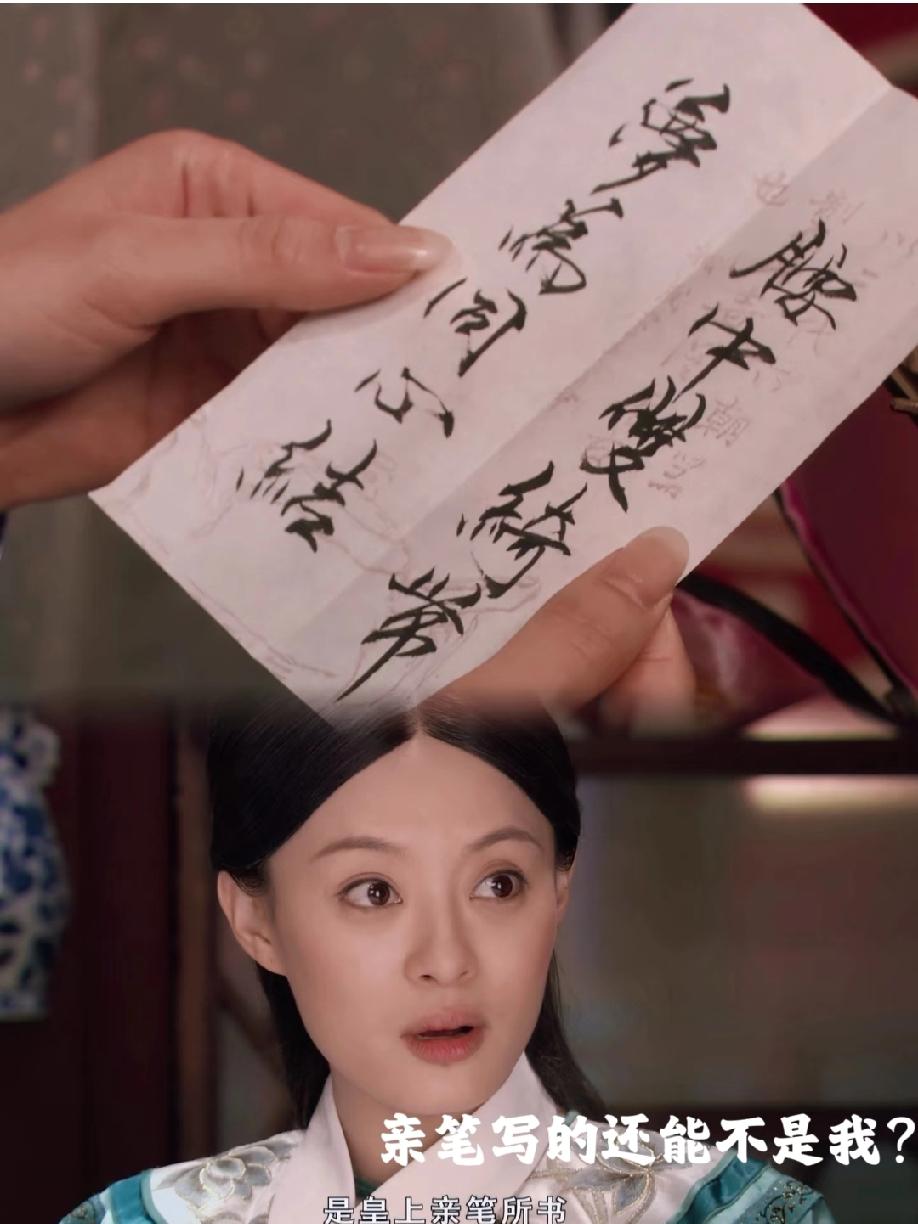 腰中雙綺帶
夢為同心結
亲笔写的还能不是我?
是皇上亲笔所书